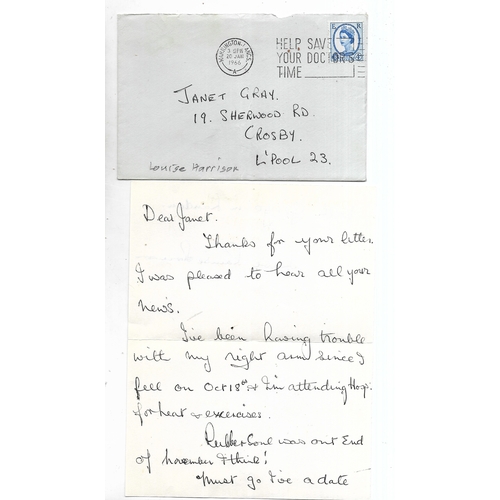 WARRINGTON LANCS.
20 JAN
1966
A
HELP SAVE
YOUR DOCTOR'S
TIME
E R
JANET GRAY.
19. SHERWOOD RD.
CROSBY.
L'POOL 23.
Louise Harrison
Dear Janet.
Thanks for your letter.
I was pleased to hear all your
news.
I've been having trouble
with my right arm since I
fell on Oct 18th & I'm attending Hosp.
for heat & exercises.
Rubber Soul was out End
of November I think!
Must go I've a date